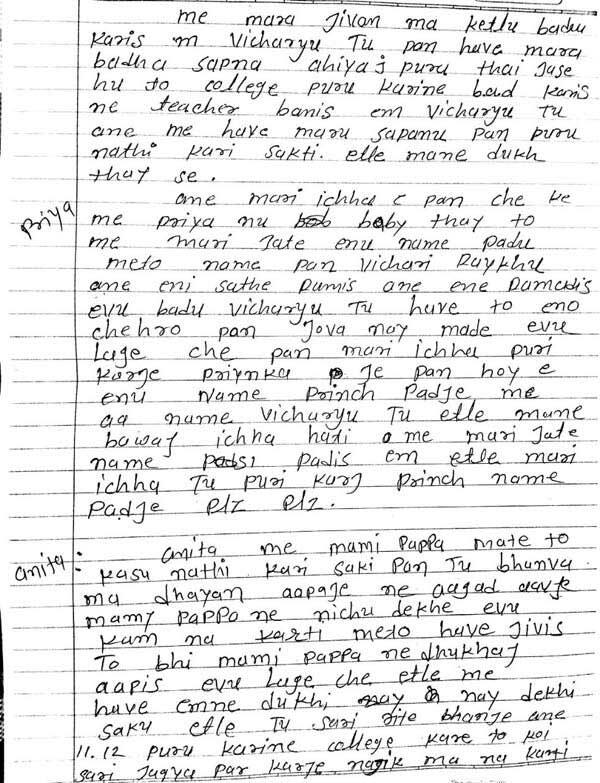 me mara Jivan ma ketlu badhu
karis m vicharyu Tu pan have mara
badha sapna ahiyaj puru thai Jase
hu to college puru karine bad karis
ne teacher banis em vicharyu Tu
ane me have maru sapanu pan puru
nathi kari sakti. etle mane dukh
thay se.
ane mari ichha c pan che ke
priya
me priya nu baby thay to
me mari Jate enu name padu
meto name pan vichari Raykhu
ane eni sathe Ramis ane ene Ramadis
evu badu vicharyu Tu have to eno
chehro pan Jova nay made evu
Lage che pan mari ichha puri
karje priynka Je pan hoy e
enu Name Princh Padje me
aa name vicharyu Tu etle mane
bawaj ichha hadi me mari Jate
name padis em etle mari
ichha Tu puri karj princh name
padje PLZ PLZ.
anita: anita me mami pappa mate to
kasu nathi kari saki pan Tu bhanva
ma dhayan aapaje ne aagad aavje
mamy pappa ne nichu dekhe evu
kam na karti meto have Jivis
To bhi mami pappa ne dhukhaj
aapis evu Lage che etle me
have emne dukhi nay dekhi
saku etle Tu sari rite bhanje ane
11.12 puru karine college kare to koi
sari Jagya par karje ma na karti